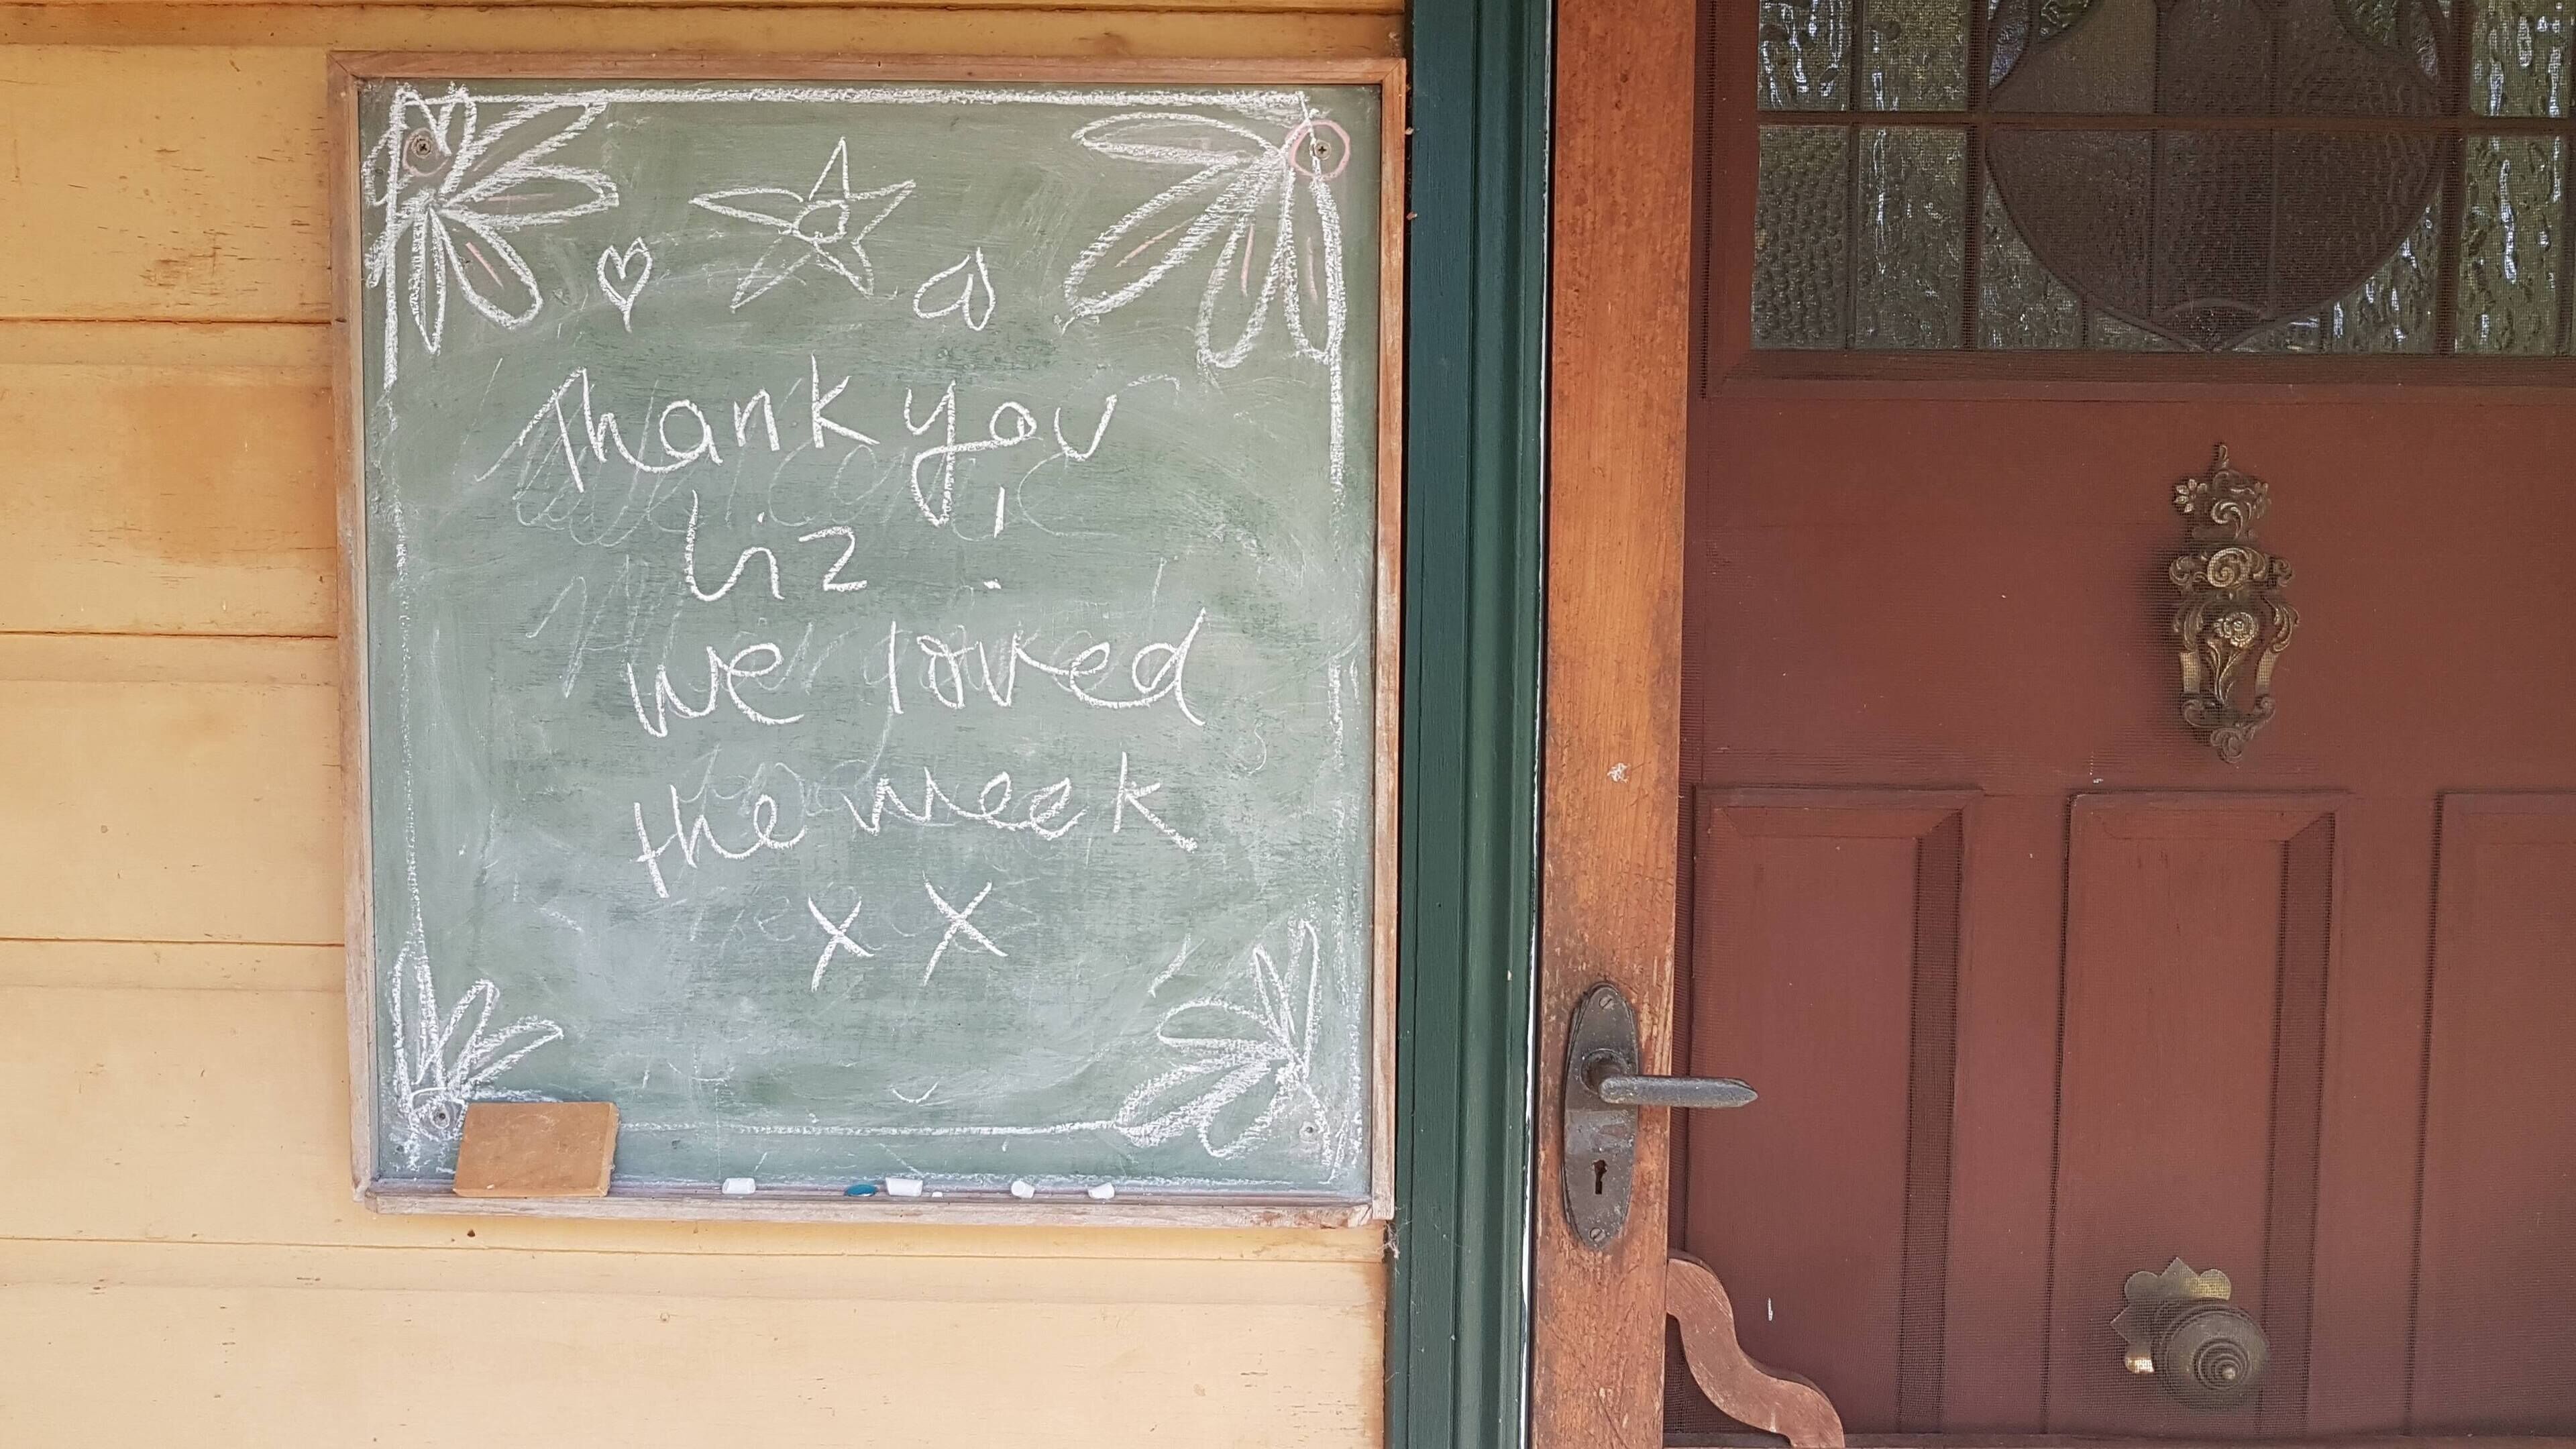 Thank you
Liz !
we loved
the week
x x